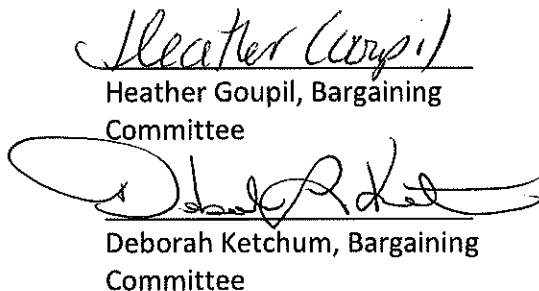 Heather Goupil
Heather Goupil, Bargaining
Committee
Deborah R Ketchum
Deborah Ketchum, Bargaining
Committee